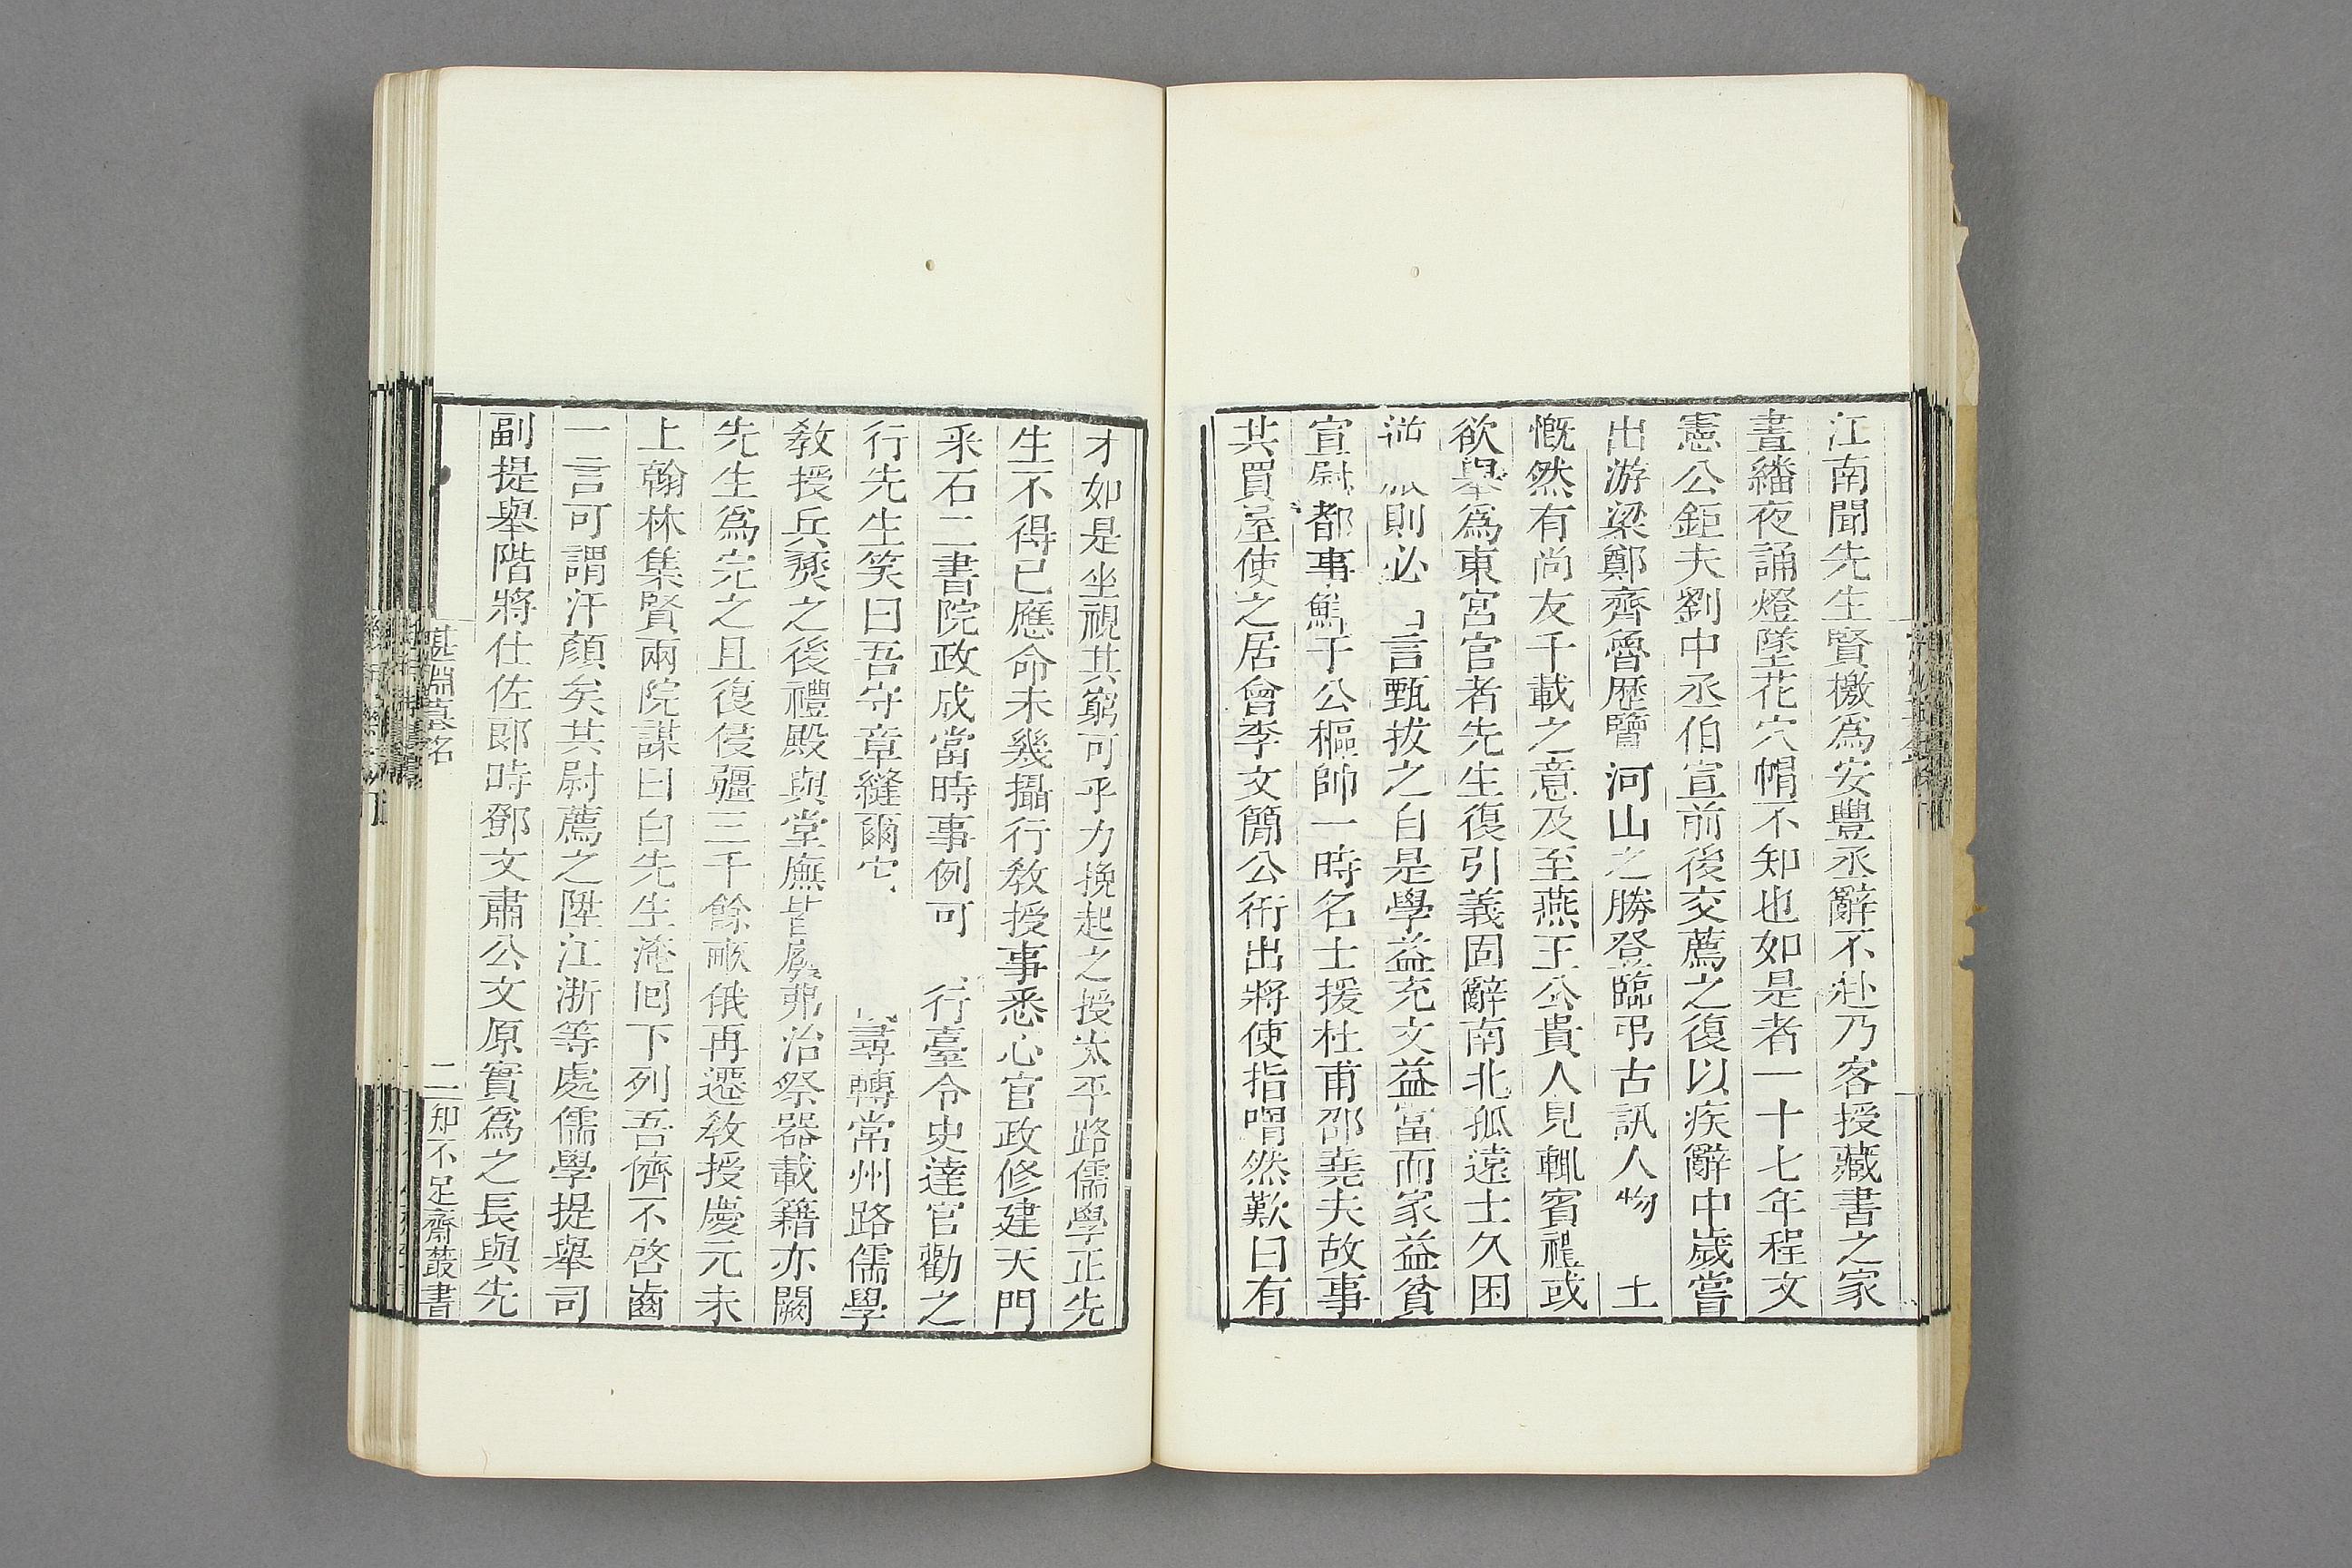 江南聞先生賢檄爲安豐丞辭不赴乃客授藏書之家
晝繙夜誦燈墜花穴帽不知也如是者一十七年程文
憲公鉅夫劉中丞伯宣前後交薦之復以疾辭中歲嘗
出游梁鄭齊魯歷覽河山之勝登臨弔古訊人物土
慨然有尚友千載之意及至燕王公貴人見輒賓禮或
欲舉爲東宮官者先生復引義固辭南北孤遠士久困
則必言甄拔之自是學益充文益富而家益貧
宣尉都事鮮于公樞帥一時名士援杜甫邵堯夫故事
共買屋使之居會李文簡公衎出將使指喟然歎曰有
才如是坐視其窮可乎力挽起之授太平路儒學正先
生不得已應命未幾攝行敎授事悉心官政修建天門
采石二書院政成當時事例可行臺令史達官勸之
行先生笑曰吾守章縫爾尋轉常州路儒學
敎授兵燹之後禮殿與堂廡皆廢弗治祭器載籍亦闕
先生爲完之且復侵疆三千餘畝俄再遷敎授慶元未
上翰林集賢兩院謀曰白先生淹囘下列吾儕不啓齒
一言可謂汗顏矣其尉薦之陞江浙等處儒學提舉司
副提舉階將仕佐郎時鄧文肅公文原實爲之長與先
湛淵墓名
二
知不足齋叢書